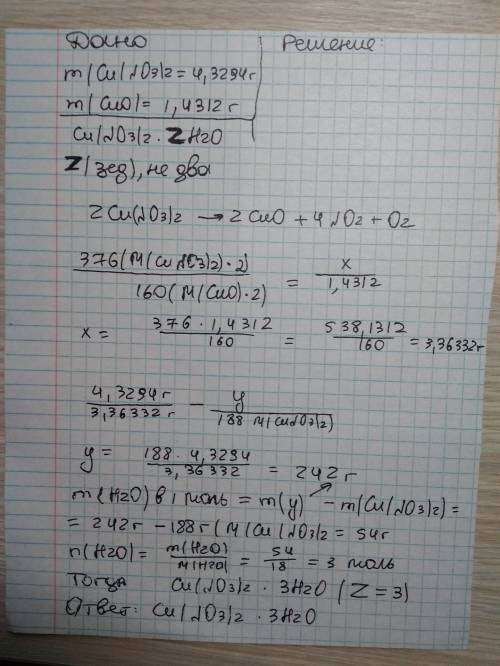 Дано Решение:
m(Cu(NO3)2 = 4,3294г
m(CuO) = 1,4312 г
Cu(NO3)2 · ZH2O
Z(зед), не два
2Cu(NO3)2 → 2CuO + 4NO2 + O2
376(M(Cu(NO3)2)·2) / 160(M(CuO)·2) = x / 1,4312
x = 376 · 1,4312 / 160 = 538,1312 / 160 = 3,36332г
4,3294г / 3,36332г - y / 188 M(Cu(NO3)2)
y = 188 · 4,3294 / 3,36332 = 242 г
m(H2O) в 1 моль = m(y) - m(Cu(NO3)2) =
= 242г - 188г (M(Cu(NO3)2 = 54г
n(H2O) = m(H2O) / M(H2O) = 54 / 18 = 3 моль
Тогда Cu(NO3)2 · 3H2O (Z = 3)
Ответ: Cu(NO3)2 · 3H2O